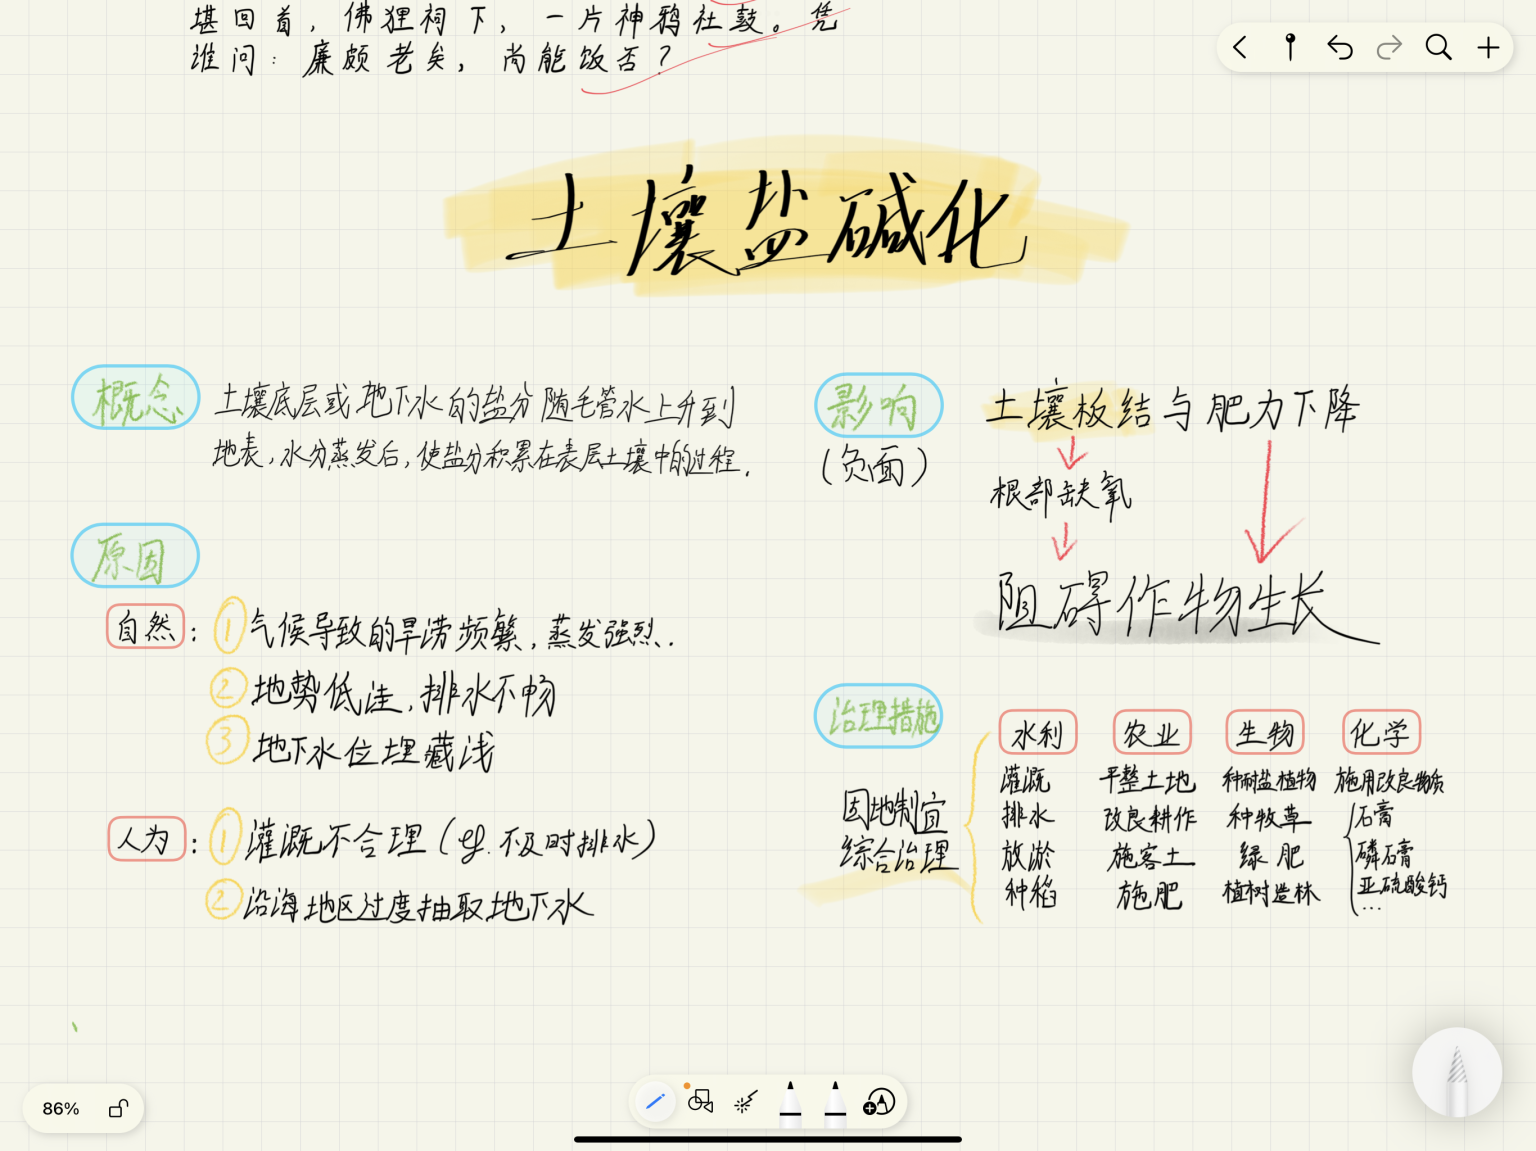 堪回首，佛狸祠下，一片神鸦社鼓。凭
谁问：廉颇老矣，尚能饭否？
土壤盐碱化
概念
土壤底层或地下水的盐分随毛管水上升到
地表，水分蒸发后，使盐分积累在表层土壤中的过程．
原因
自然：①气候导致的旱涝频繁，蒸发强烈．
②地势低洼，排水不畅
③地下水位埋藏浅
人为：①灌溉不合理（eg. 不及时排水）
②沿海地区过度抽取地下水
影响
（负面）
土壤板结与肥力下降
根部缺氧
阻碍作物生长
治理措施
因地制宜
综合治理
水利
灌溉
排水
放淤
种稻
农业
平整土地
改良耕作
施客土
施肥
生物
种耐盐植物
种牧草
绿肥
植树造林
化学
施用改良物质
石膏
磷石膏
亚硫酸钙
…
86%